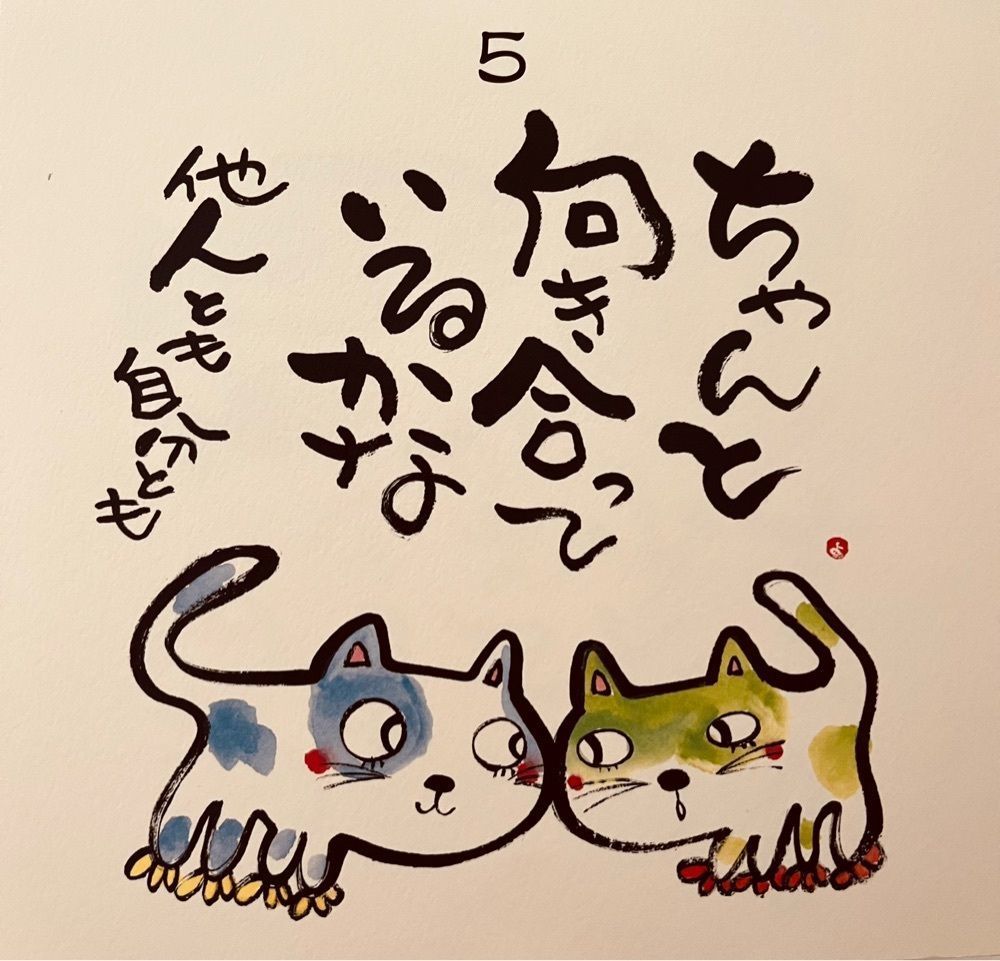 5
ちゃんと
向き合って
いるかな
他人とも
自分とも
よ